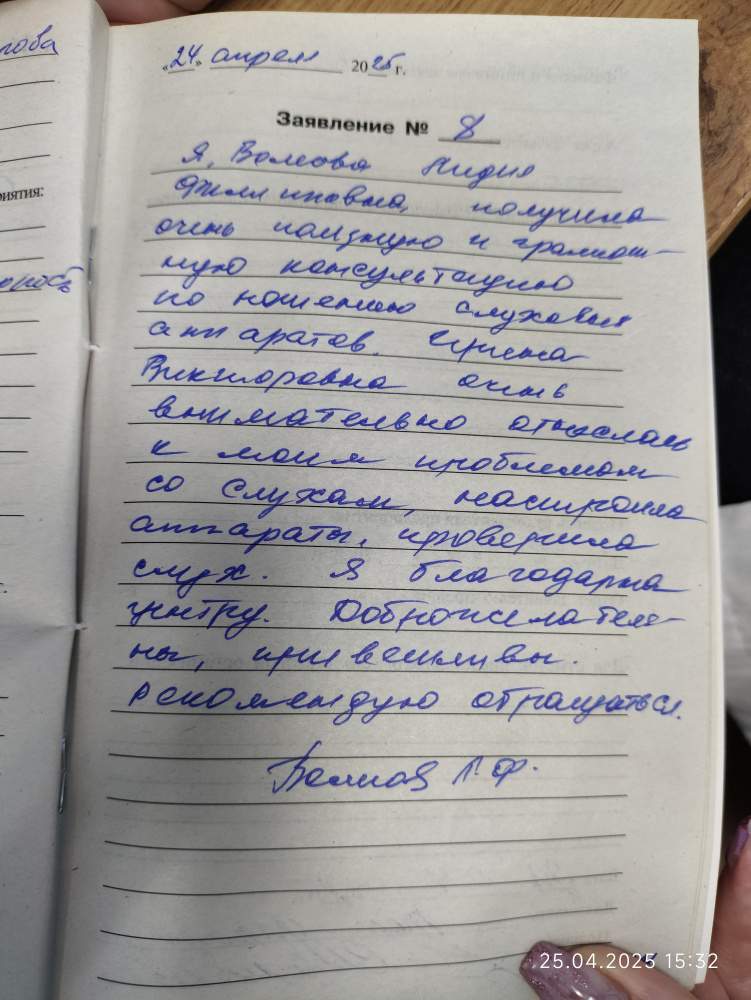 «24» апреля 2025 г.
Заявление № 8
Я, Лидия
получила
очень полезную и грамот-
ную консультацию
по ношению слуховых
аппаратов. Ирина
Викторовна очень
внимательно отнеслась
к моим проблемам
со слухам, настроила
аппараты, проверила
слух. Я благодарна
центру. Доброжелатель-
ны, приветливы.
Рекомендую обращаться.
Л. Ф.
риятия:
25.04.2025 15:32